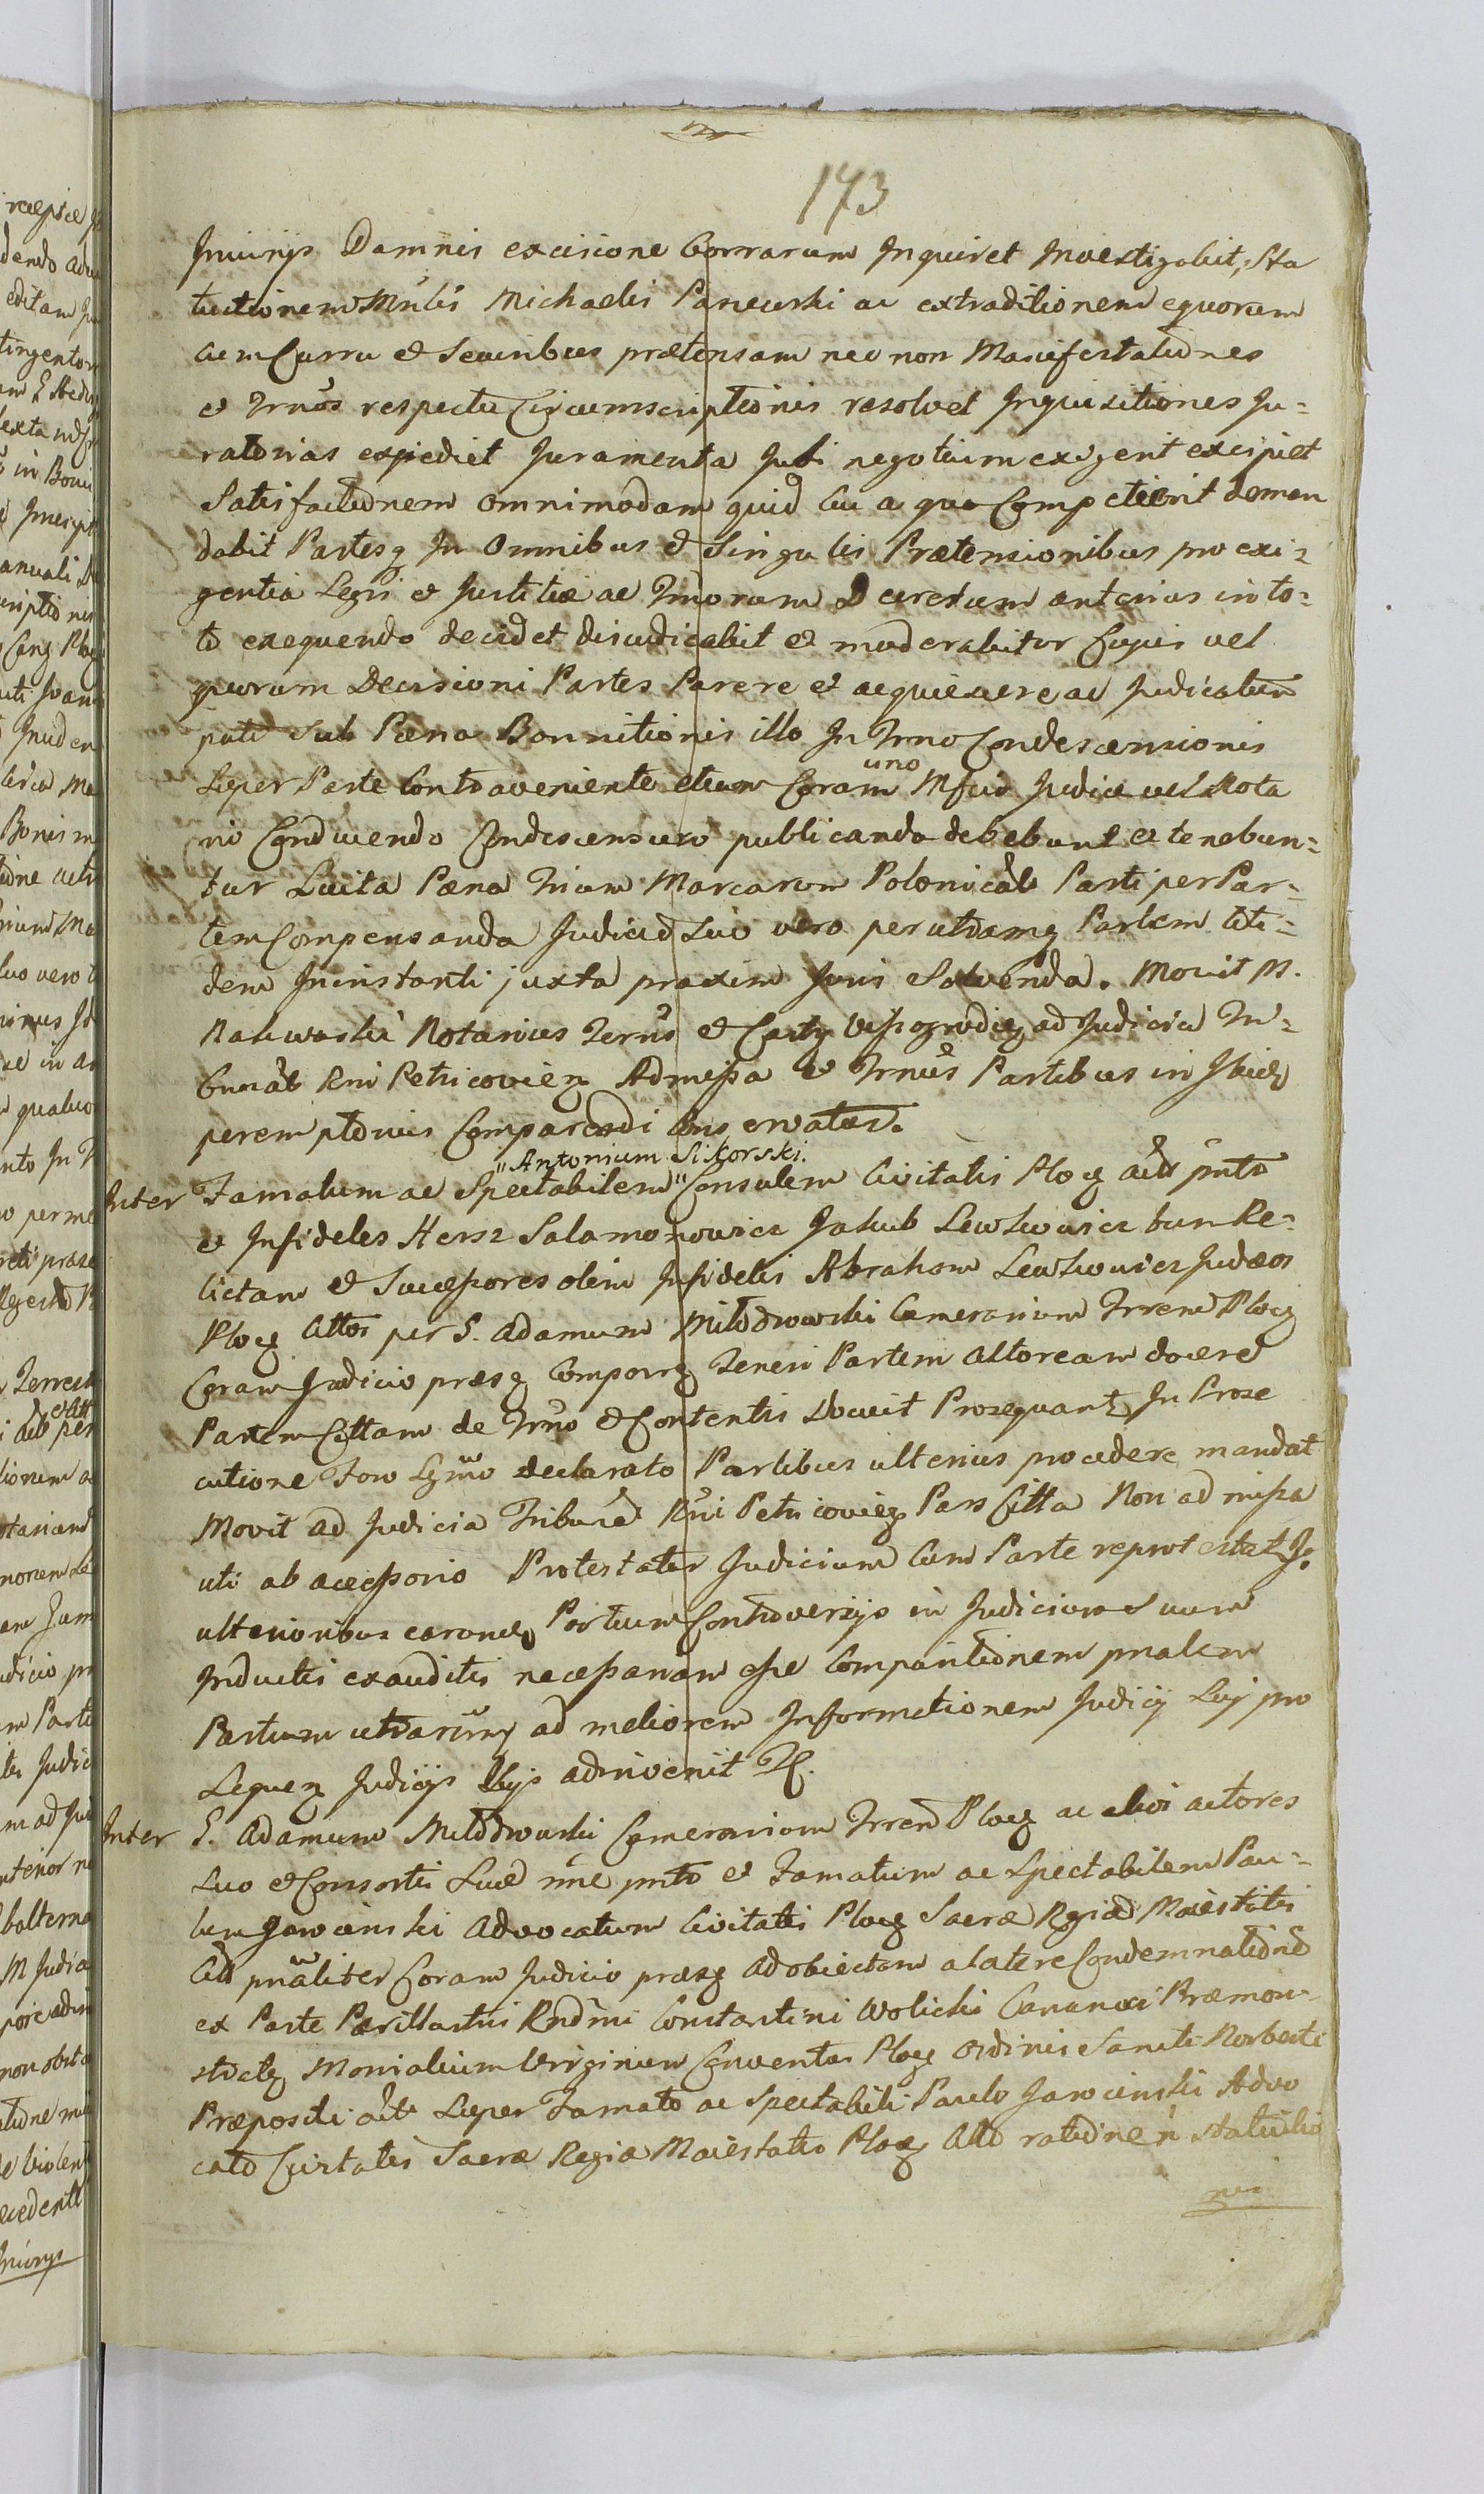 173
Iniurijs Damnis excisione Borrarum Inquiret Investigabit, Sta
tuitionem Mnlis Michaelis Panewski ac extraditionem equorum
cum Curru et Securibus prætensam nec non Manifestationes
et Trnos respectu Circumscriptionis resolvet Inquisitiones Ju=
ratorias expediet Juramenta Jubi negotium exigerit excipiet
Satisfactionem omnimodam quid cui a quo Competierit deman
dabit Partesq in Omnibus et Singulis Prætensionibus pro exi=
gentia Legis et Justitiæ ac Trnorum Decretum anterius in to=
to exequendo decidet disiudicabit et moderabitur Cujus vel
quorum Decisioni Partes Parere et acquiescere ac Judicatum
pati sub Pæna Bannitionis illo In Trno Condescensionis
Super Parte Contraveniente etiam Coram uno Mfico Judice vel Nota
rio Conducendo Condescensuro publicanda debebunt et tenebun=
tur Luita Pæna Trium Marcarum Polonical Parti per Par=
tem Compensanda Judicio Suo vero per utramq Partem toti=
dem In instanti juxta praxim Juris Solvenda. Movit M.
Nakwaski Notarius Terrus et Castr Wyszogrodien ad Judicia Tri=
bunal Rni Petricovien Admissa et Trnus Partibus in Ibidem
peremptorius Comparendi conservatur.
Inter Famatum ac Spectabilem "Antonium Sikorski." Consulem Civitatis Ploc act pnto
et Infideles Hersz Salamonowicz Jakub Lewkowicz tum Re=
lictam et Successores olim Infidelis Abraham Lewkowicz Judæos
Ploc Cttos per G. Adamum Miłodrowski Camerarium Trrem Ploc
Coram Judicio præsq Comparq Teneri Partem Actoream docere
Partem Cittam de Trno et Contentis Docuit Prosequant In Prose
cutione Foro Lgmo declarato Partibus ulterius procedere mandat
Movit ad Judicia Tribunal Rni Petricovien Pars Citta Non admissa
uti ab accessorio Protestatur Judicium cum Parte reprotestat In
ulterioribus earundem Partium Controversijs in Judicium Suum
Inductis exauditis necessariam esse Comparitionem pnalem
Partium utrarumq ad meliorem Informationem Judicij Sui pro
Sequen Judicijs Suis adinvenit
Inter G. Adamum Miłodrowski Camerarium Trrem Ploc ac alios actores
Suo et Consortis Suæ nne pnto et Famatum ac Spectabilem Pau=
lum Jarocinski Advocatum Civitatis Ploc Sacræ Regiæ Maiestatis
Citt pnaliter Coram Judicio præsq ad obiectam a latere Condemnationem
ex Parte Perillustris Rndmi Constantini Wolicki Canonici Præmon=
straten Monialium Virginum Conventus Ploc Ordinis Sancti Norberti
Præpositi act Super Famato ac Spectabili Paulo Jarocinski Advo
cato Civitatis Sacræ Regiæ Maiestatis Ploc Citto ratione n statuitio
nis